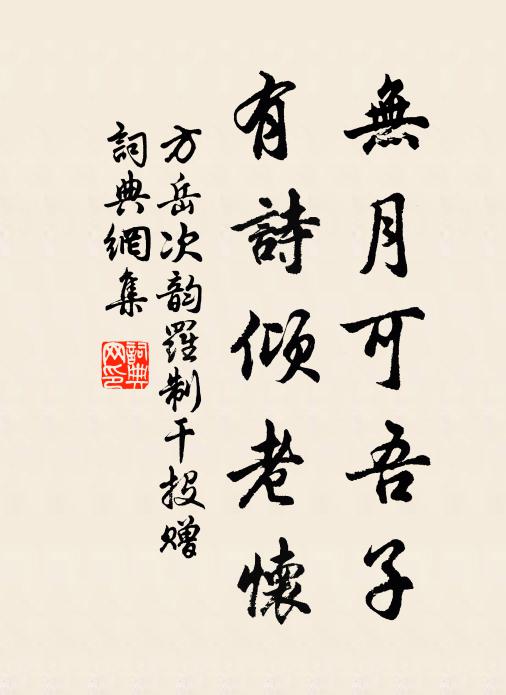 無月可吾子
有詩傾老懷
方岳次韵羅制干投赠
詞典網集
詞典网印